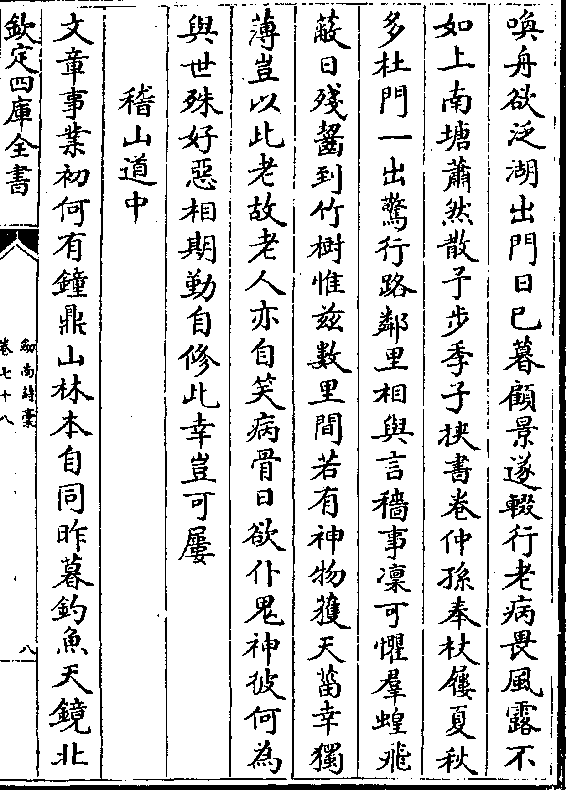 喚舟欲泛湖出門日已暮顧景遂輟行老病畏風露不
如上南塘蕭然散予步季子挾書卷仲孫奉杖屨夏秋
多杜門一出驚行路鄰里相與言穡事凜可懼羣蝗飛
蔽日殘齧到竹樹惟兹數里間若有神物䕶天菑幸獨
薄豈以此老故老人亦自笑病骨日欲仆鬼神彼何為
與世殊好惡相期勤自修此幸豈可屢
稽山道中
文章事業初何有鐘鼎山林本自同昨暮釣魚天鏡北
欽定四庫全書
劒南詩稾
卷七十八
八